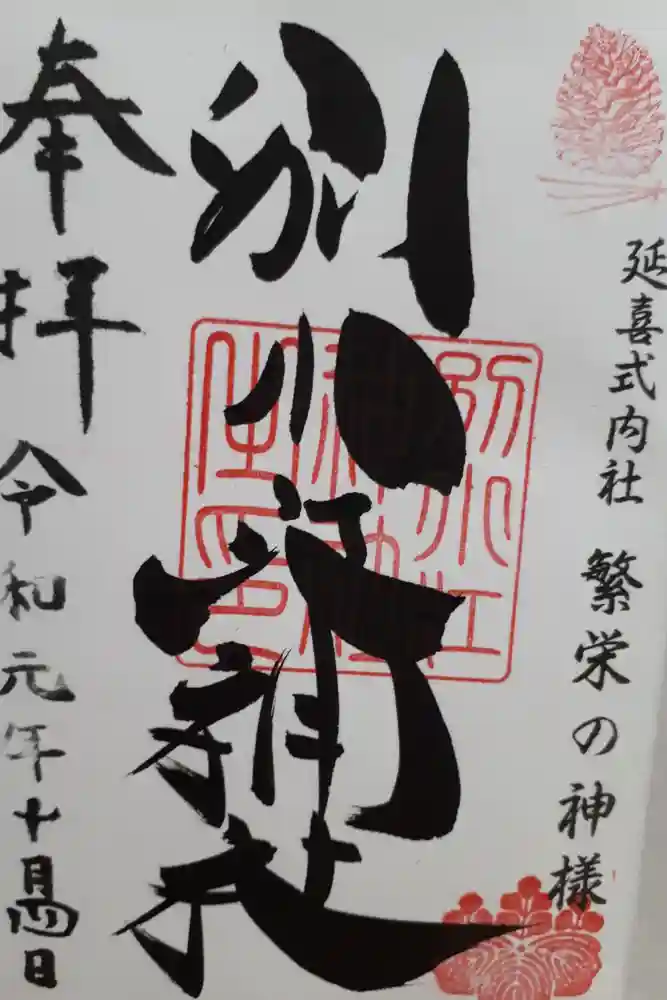 延喜式内社 繁栄の神様
別小江神社
別小江
神社
之印
奉拝 令和元年十月四日